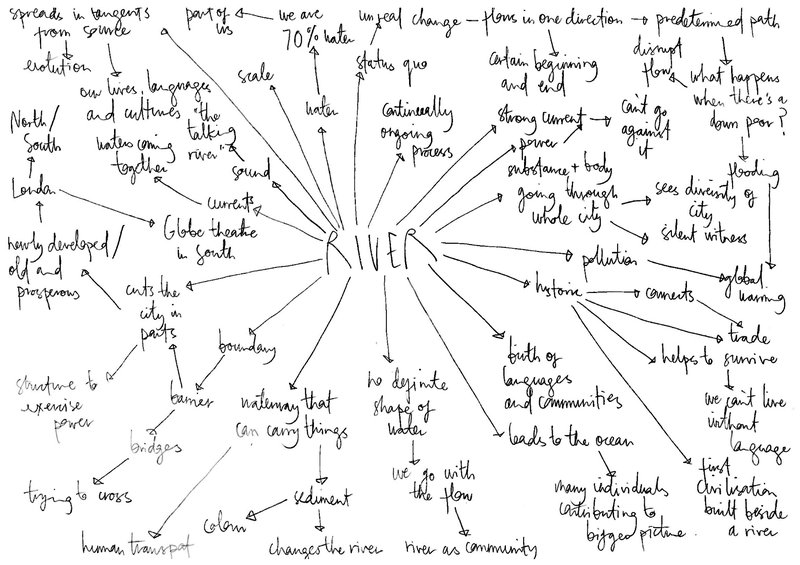 spreads in tangents
from source
evolution
part of
us
we are
70% water
unreal change
flows in one direction
predetermined path
disrupt
flow
what happens
when there's a
down poor?
flooding
global
warming
status quo
certain beginning
and end
our lives, languages
and cultures
scale
water
continually
ongoing
process
strong current
power
can't go
against
it
"the
talking
river"
sound
waters coming
together
currents
substance + body
going through
whole city
sees diversity of
city
silent witness
North/
South
London
Globe theatre
in South
newly developed/
old and
prosperous
RIVER
pollution
historic
connects
trade
helps to survive
we can't live
without
language
cuts the
city in
parts
structure to
exercise
power
boundary
barrier
bridges
trying to cross
waterway that
can carry things
human transpot
sediment
colour
changes the river
no definite
shape of
water
we go with
the flow
river as community
birth of
languages
and communities
leads to the ocean
many individuals
contributing to
bigger picture.
first
civilisation
built beside
a river